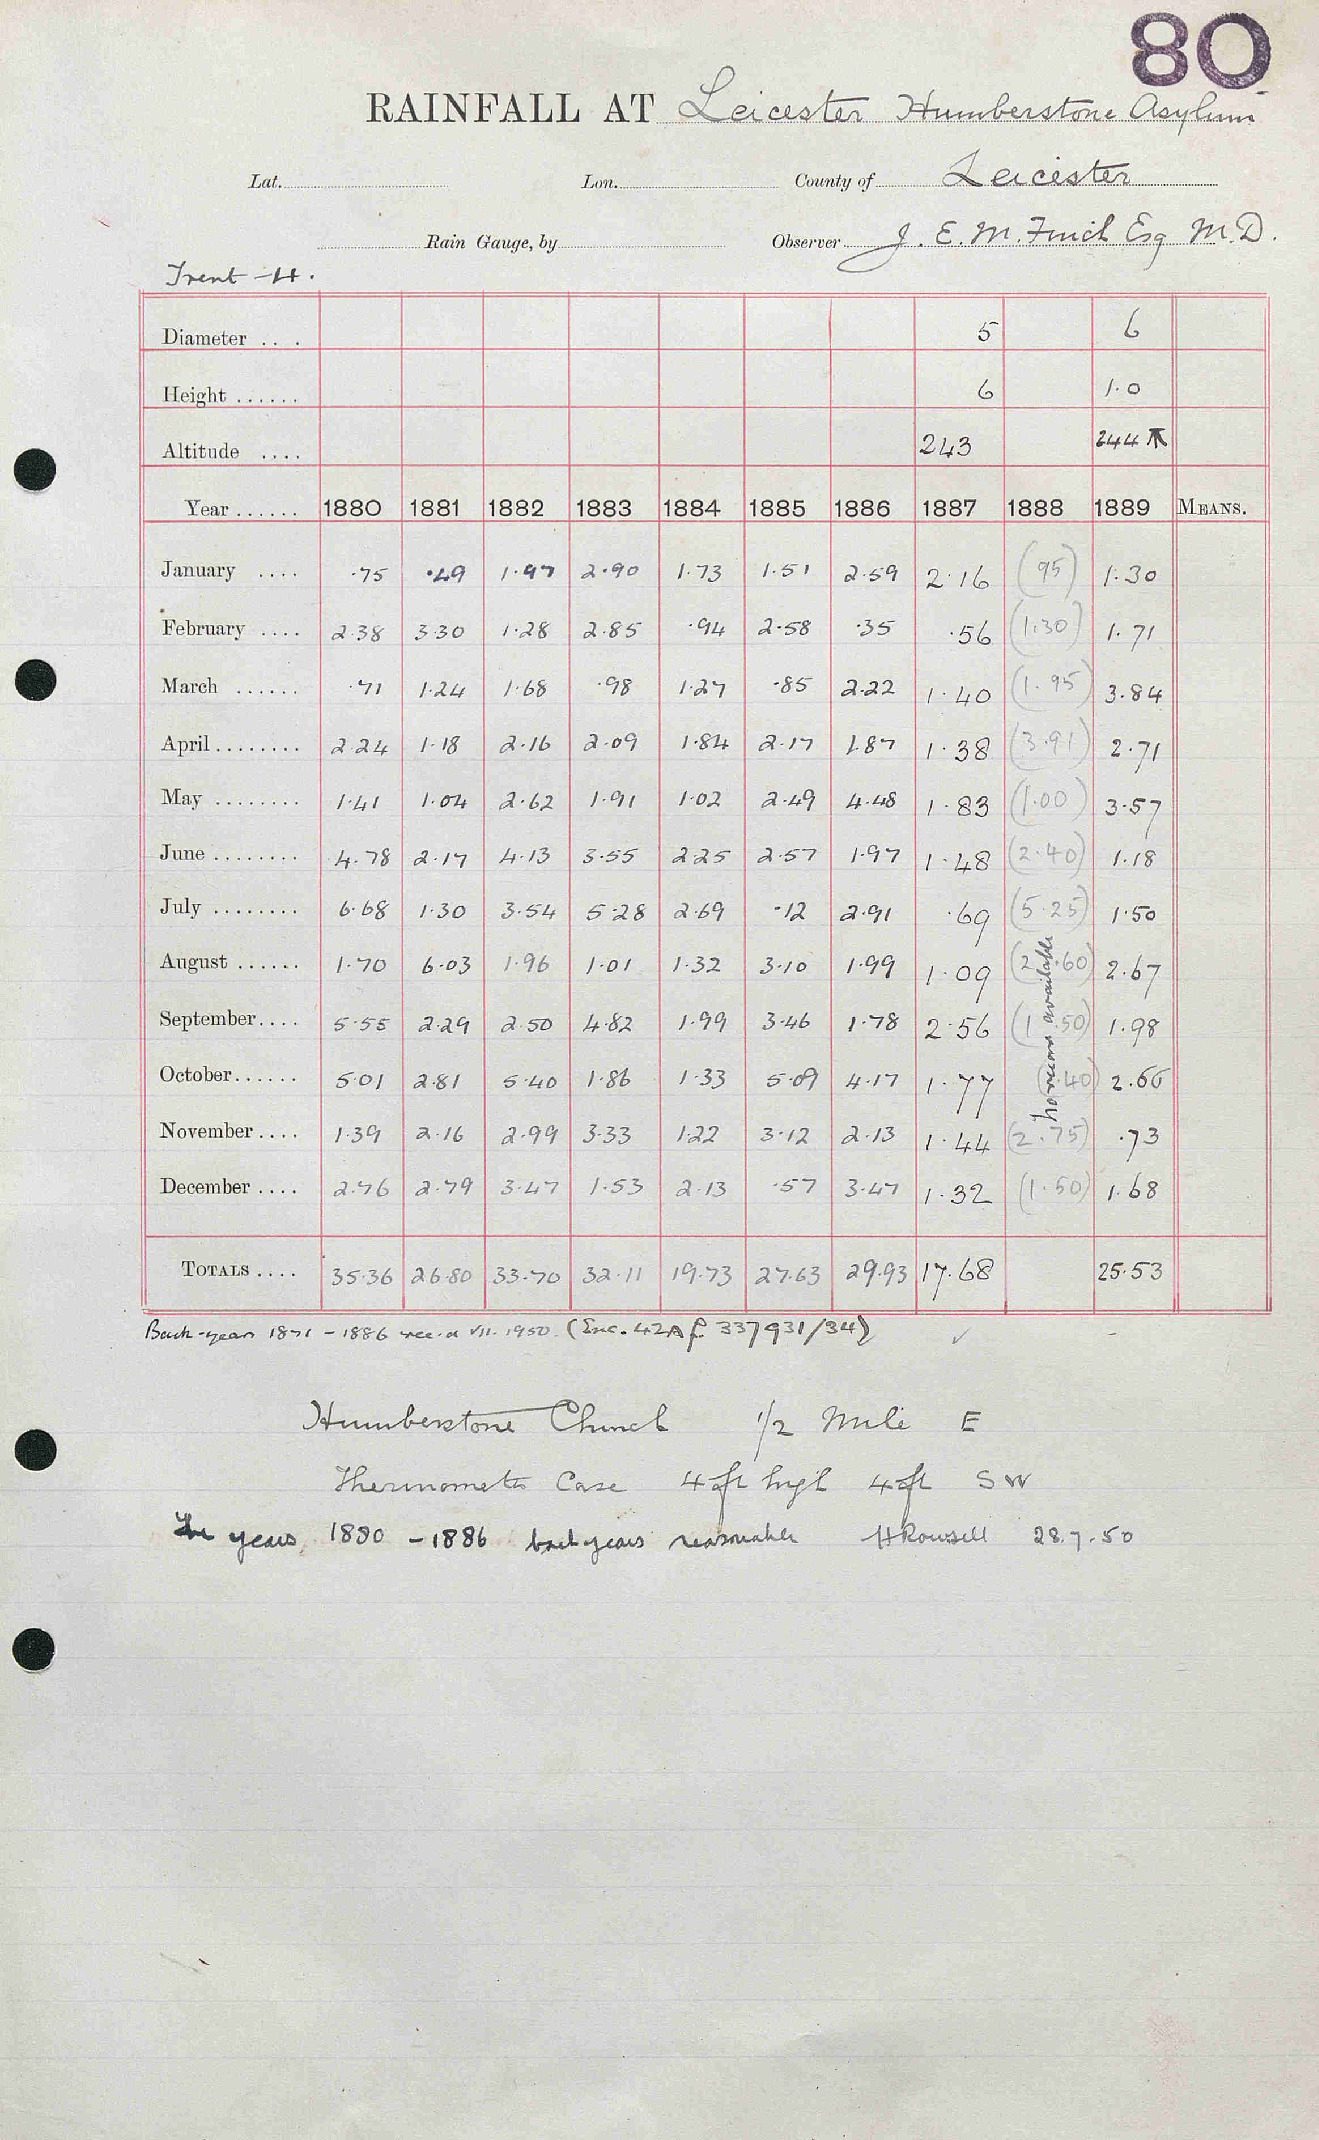 80
RAINFALL AT Leicester Humberstone Asylum
Lat. Lon. County of Leicester
Rain Gauge, by Observer J. E. M. Finch Esq M.D.
Trent -H.
Diameter .... 5 6
Height ...... 6 1·0
Altitude .... 243 244
Year ...... 1880 1881 1882 1883 1884 1885 1886 1887 1888 1889 MEANS.
January .... ·75 ·49 1·97 2·90 1·73 1·51 2·59 2·16 (95) 1·30
February .... 2·38 3·30 1·28 2·85 ·94 2·58 ·35 ·56 (1·30) 1·71
March ...... ·71 1·24 1·68 ·98 1·27 ·85 2·22 1·40 (1·95) 3·84
April ........ 2·24 1·18 2·16 2·09 1·84 2·17 1·87 1·38 (3·91) 2·71
May ........ 1·41 1·04 2·62 1·91 1·02 2·49 4·48 1·83 (1·00) 3·57
June ........ 4·78 2·17 4·13 3·55 2·25 2·57 1·97 1·48 (2·40) 1·18
July ........ 6·68 1·30 3·54 5·28 2·69 ·12 2·91 ·69 (5·25) 1·50
August ...... 1·70 6·03 1·96 1·01 1·32 3·10 1·99 1·09 (2·60) 2·67
September .... 5·55 2·29 2·50 4·82 1·99 3·46 1·78 2·56 (1·50) 1·98
October ...... 5·01 2·81 5·40 1·86 1·33 5·09 4·17 1·77 (·40) 2·66
November .... 1·39 2·16 2·99 3·33 1·22 3·12 2·13 1·44 (2·75) ·73
December .... 2·76 2·79 3·47 1·53 2·13 ·57 3·47 1·32 (1·50) 1·68
available
TOTALS .... 35·36 26·80 33·70 32·11 19·73 27·63 29·93 17·68 25·53
Back-years 1871 - 1886 rec. VII. 1950. (Enc. 42A f 337931/34)
Humberstone Church 1/2 Mile E
Thermometer Case 4 ft high 4 ft SW
The years 1880 - 1886 back years reasonable HRowsell 28.7.50